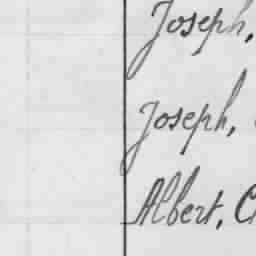 Joseph,
Joseph,
Albert, C